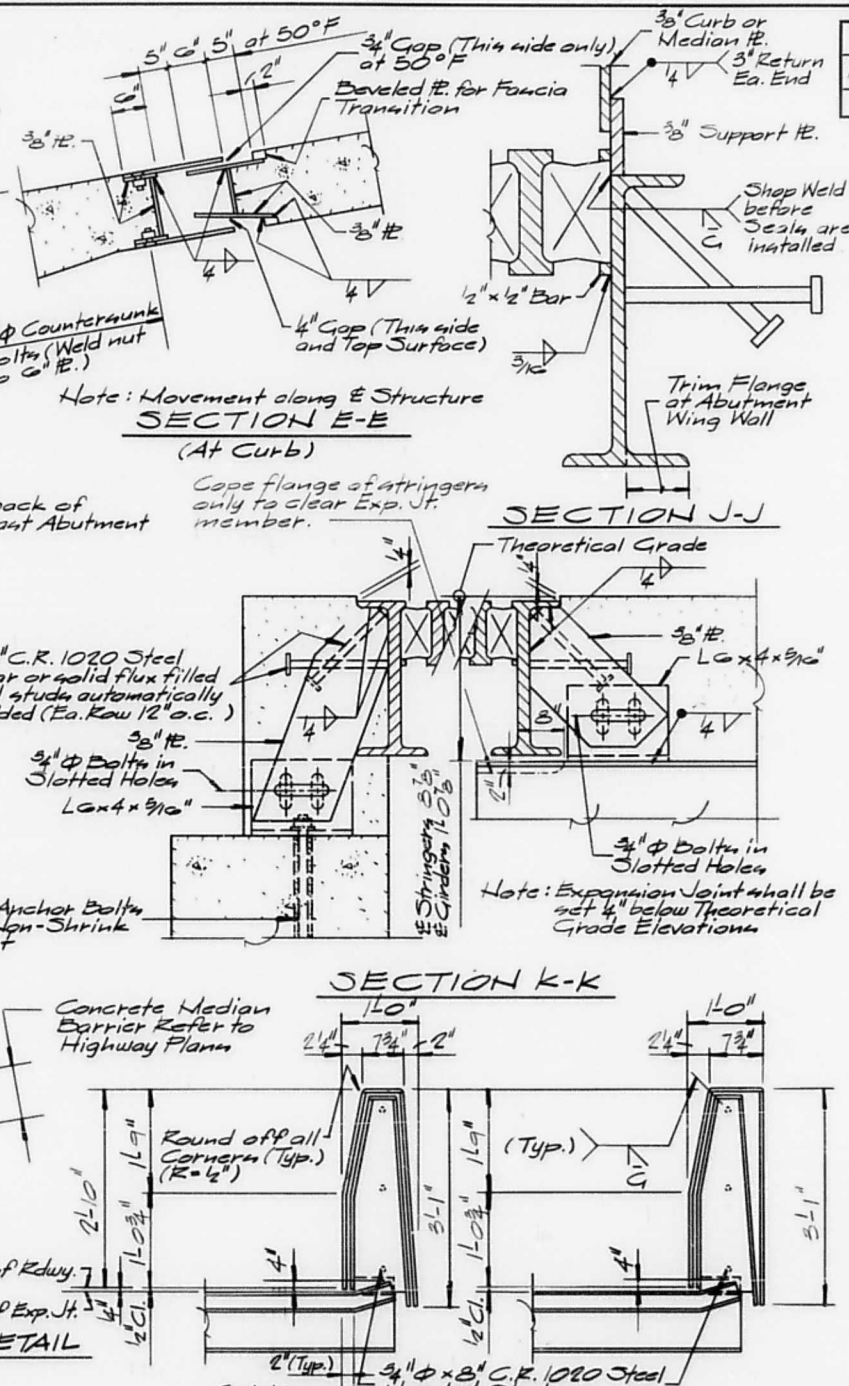 5" 6" 5" at 50°F
2"
6"
3/4" Gap (This side only)
at 50°F
Beveled PL. for Fascia
Transition
3/8" PL.
3/8" PL.
1/4
1/4
1/4" Gap (This side
and Top Surface)
Φ Countersunk
olts (Weld nut
o 6" PL.)
Note: Movement along ℄ Structure
SECTION E-E
(At Curb)
3/8" Curb or
Median PL.
3" Return
Ea. End
1/4
3/8" Support PL.
Shop Weld
before
Seals are
installed
G
1/2" x 1/2" Bar
3/16
Trim Flange
at Abutment
Wing Wall
SECTION J-J
back of
ast Abutment
Cope flange of stringers
only to clear Exp. Jt.
member.
Theoretical Grade
1/4"
1/4"
1/4
" C.R. 1020 Steel
or or solid flux filled
d studs automatically
ded (Ea. Row 12" o.c.)
5/8" PL.
L6x4x5/16"
1/4
1/4
5/8" PL.
3/4" Φ Bolts in
Slotted Holes
L6x4x5/16"
8"
2"
℄ Stringers 8 7/8"
℄ Girders 1'-0 7/8"
3/4" Φ Bolts in
Slotted Holes
Anchor Bolts
on-Shrink
Note: Expansion Joint shall be
set 1/4" below Theoretical
Grade Elevations
SECTION K-K
Concrete Median
Barrier Refer to
Highway Plans
1'-0"
2 1/4" 7 3/4" 2"
1'-0"
2 1/4" 7 3/4"
Round off all
Corners (Typ.)
(R=1/2")
(Typ.)
G
2'-10"
1'-9"
1'-0 3/4"
1/2" Cl.
3'-1"
1'-9"
1'-0 3/4"
1/2" Cl.
3'-1"
4"
4"
of Rdwy.
1/4"
f Exp. Jt.
ETAIL
2" (Typ.)
3/4" Φ x 8" C.R. 1020 Steel